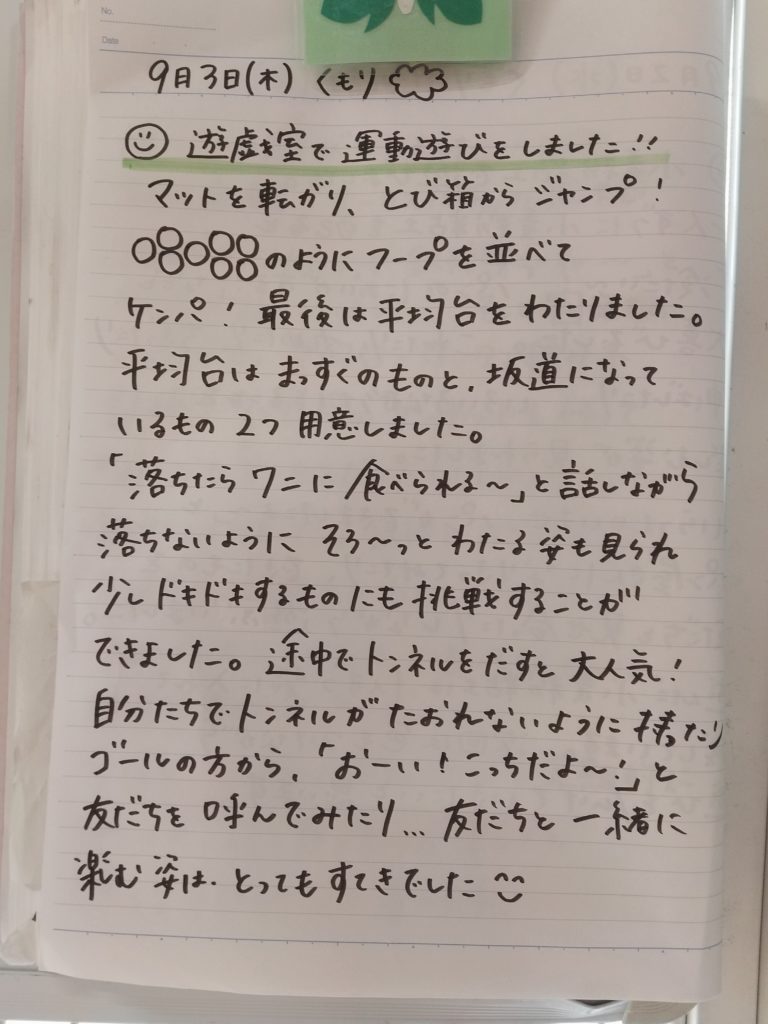 No.
Date
9月3日(木) くもり
遊戯室で運動遊びをしました!!
マットを転がり、とび箱からジャンプ!
○8○88のようにフープを並べて
ケンパ! 最後は平均台をわたりました。
平均台はまっすぐのものと、坂道になって
いるもの 2つ 用意しました。
「落ちたらワニに食べられる～」と話しながら
落ちないように そろ～っと わたる姿も見られ
少しドキドキするものにも挑戦することが
できました。途中でトンネルをだすと大人気!
自分たちでトンネルがたおれないように持ったり
ゴールの方から、「おーい!こっちだよ～!」と
友だちを呼んでみたり… 友だちと一緒に
楽しむ姿は、とってもすてきでした